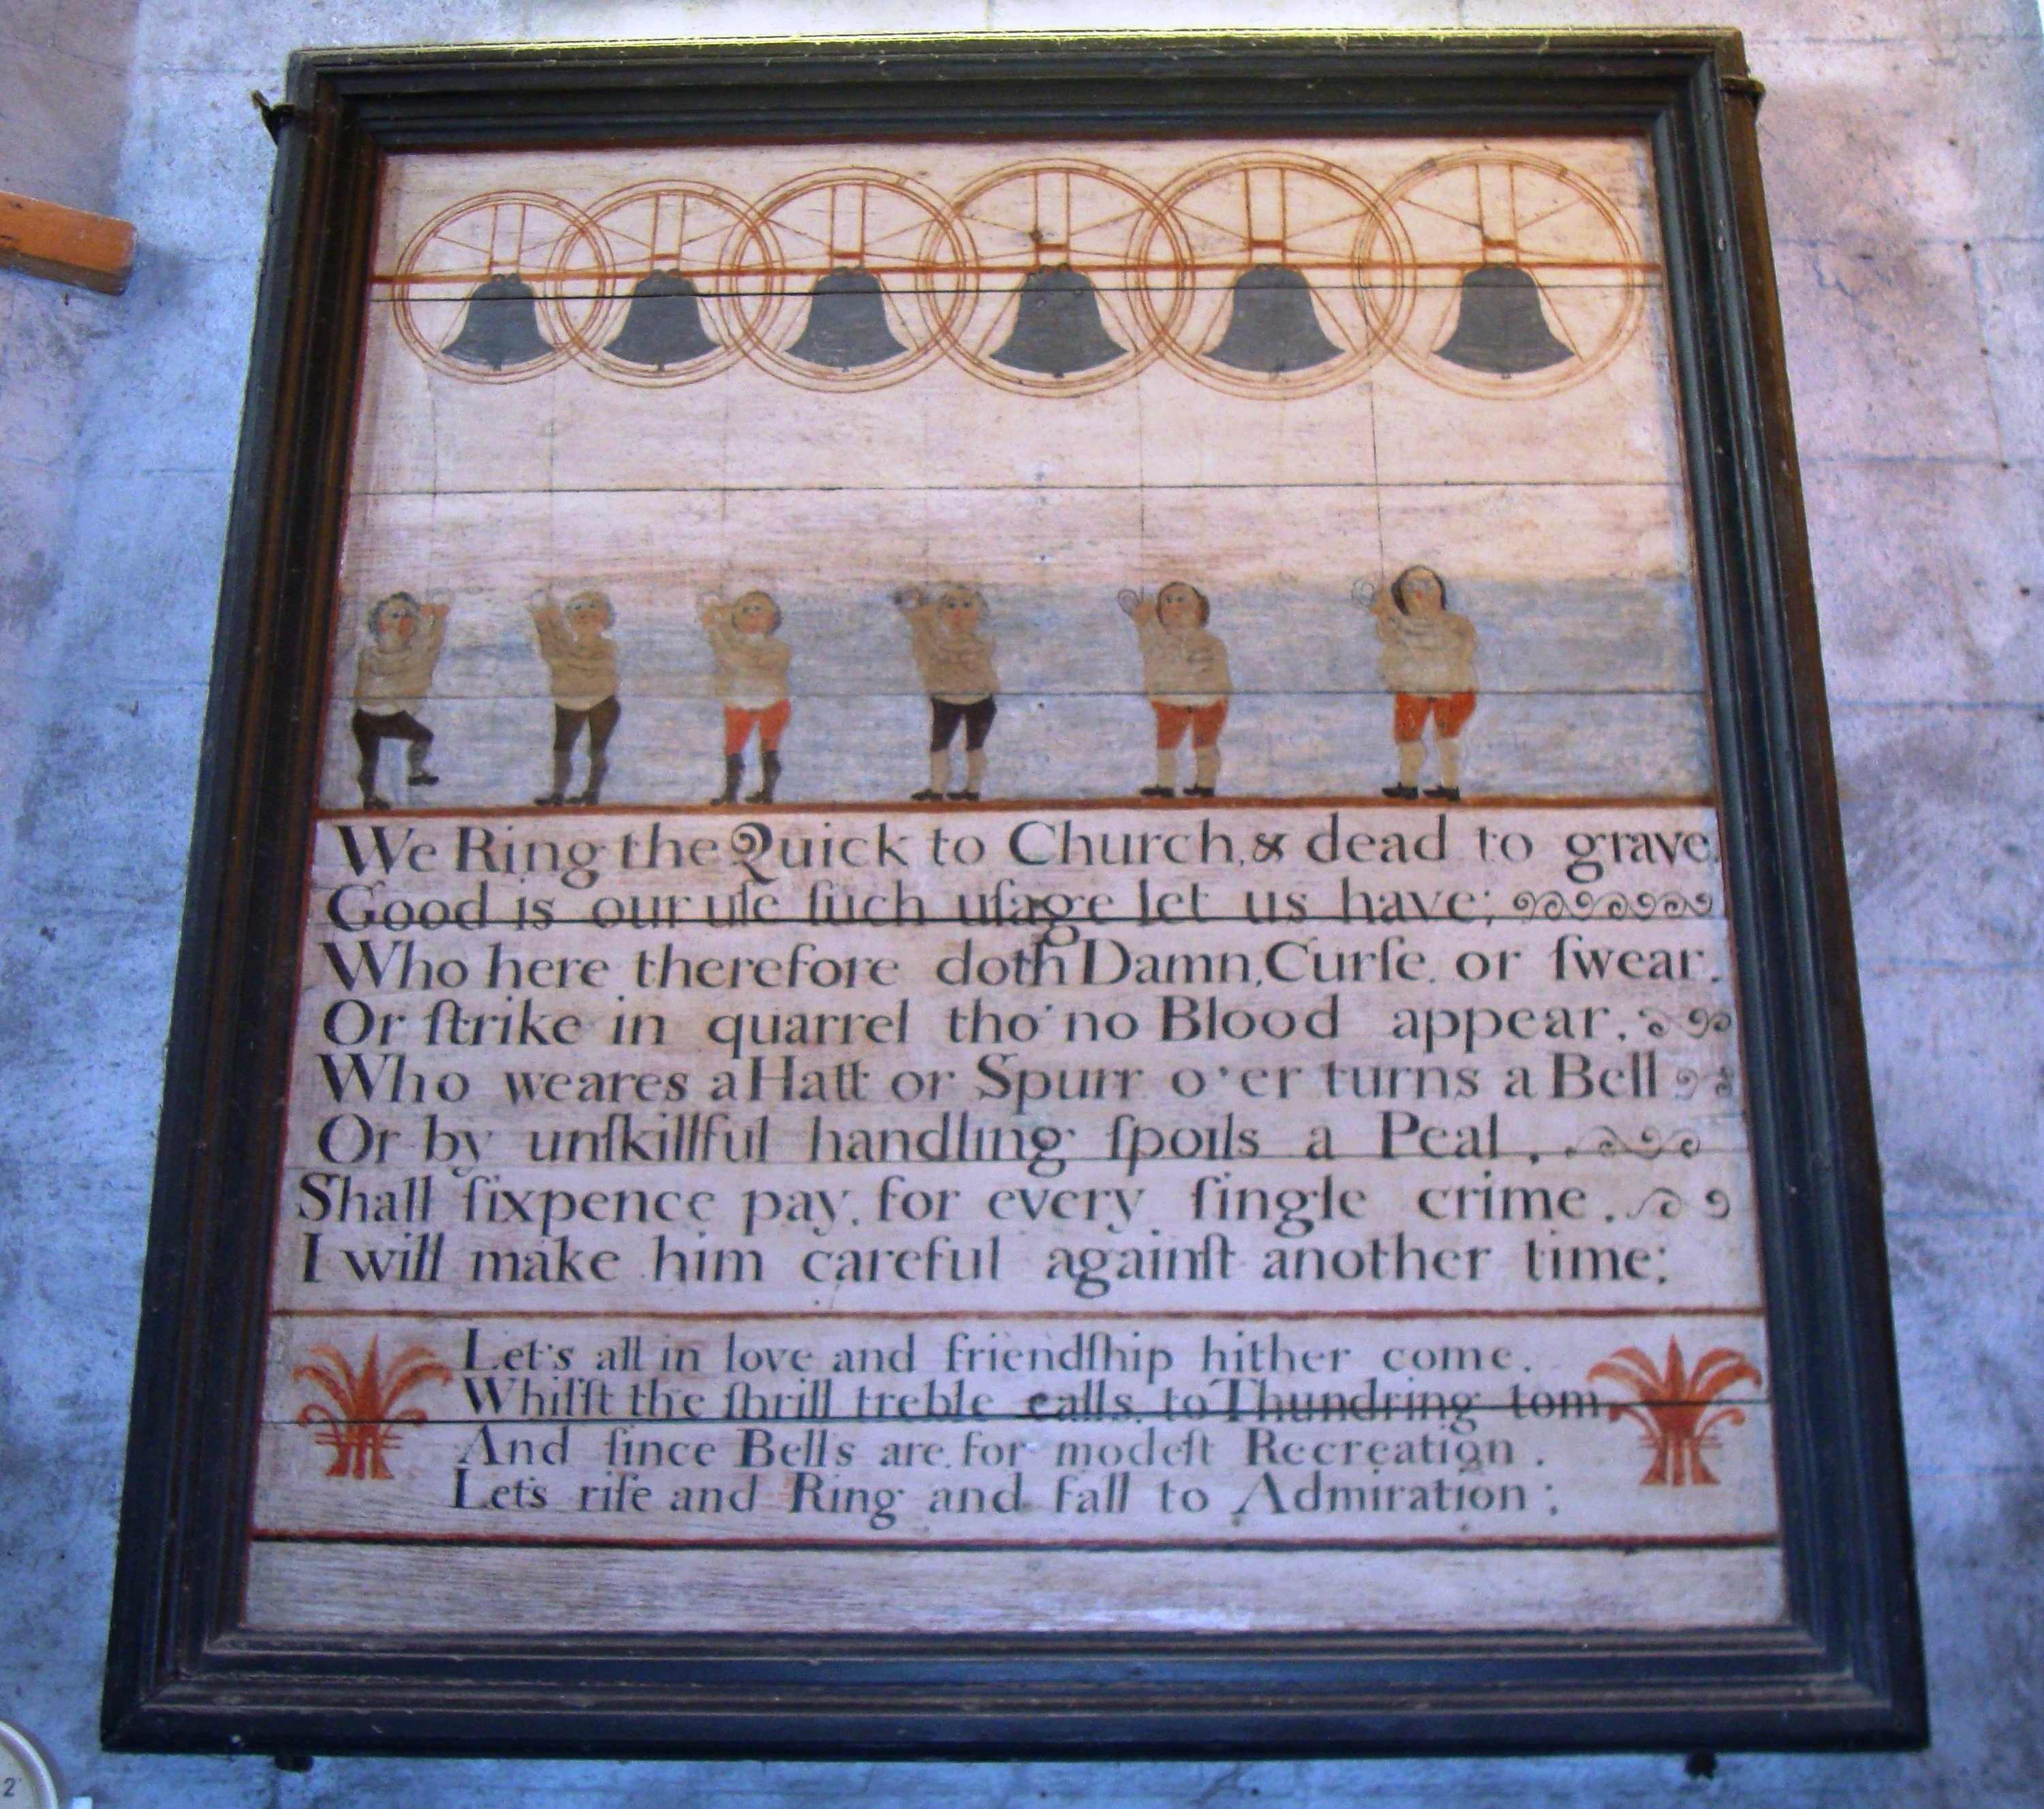 We Ring the Quick to Church, & dead to grave,
Good is our uſe ſuch uſage let us have;
Who here therefore doth Damn, Curſe, or ſwear,
Or ſtrike in quarrel tho' no Blood appear,
Who weares a Hatt or Spurr o'er turns a Bell
Or by unſkillful handling ſpoils a Peal,
Shall ſixpence pay, for every ſingle crime,
I will make him careful againſt another time;
Let's all in love and friendſhip hither come,
Whilſt the ſhrill treble calls to Thundring tom,
And ſince Bells are for modeſt Recreation,
Let's riſe and Ring and fall to Admiration;
2